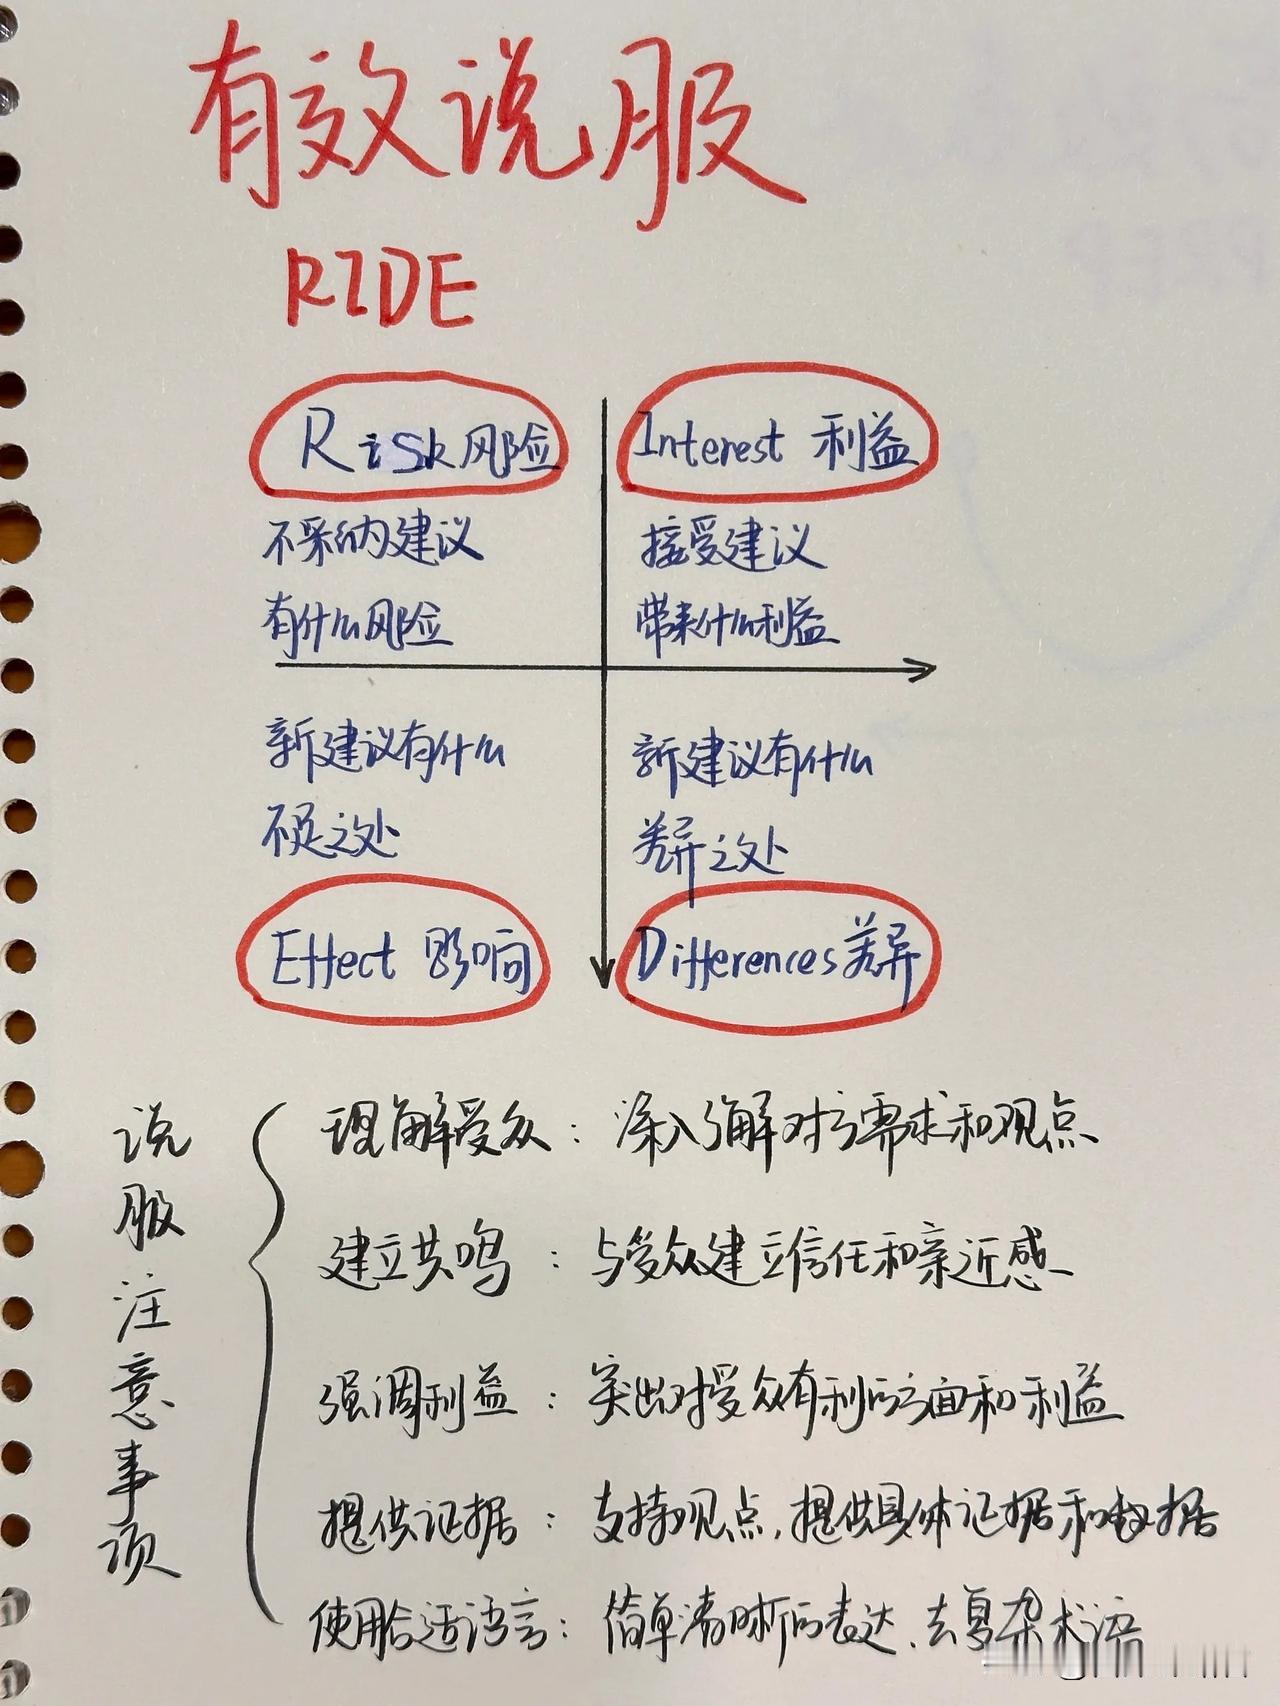 有效说服
RIDE
Risk 风险
Interest 利益
不采纳建议
有什么风险
接受建议
带来什么利益
新建议有什么
不足之处
新建议有什么
差异之处
Effect 影响
Differences 差异
说服注意事项
理解受众：深入了解对方需求和观点
建立共鸣：与受众建立信任和亲近感
强调利益：突出对受众有利的方面和利益
提供证据：支持观点，提供具体证据和数据
使用合适语言：简单清晰的表达、去复杂术语